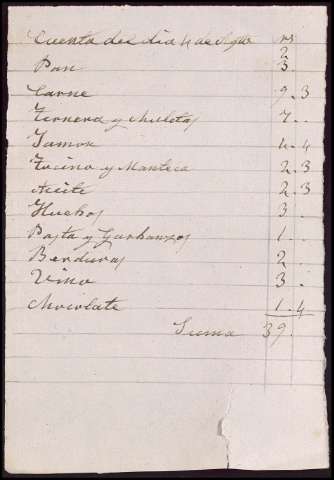 Cuenta del dia 4 de Agto rs
2
Pan 3
Carne 9.3
Ternera y Chuletas 7..
Jamon 4.4
Tocino y Manteca 2.3
Aceite 2.3
Huebos 3.
Pasta y Garbanzos 1..
Berduras 2..
Vino 3.
Chocolate 1.4
Suma 39.